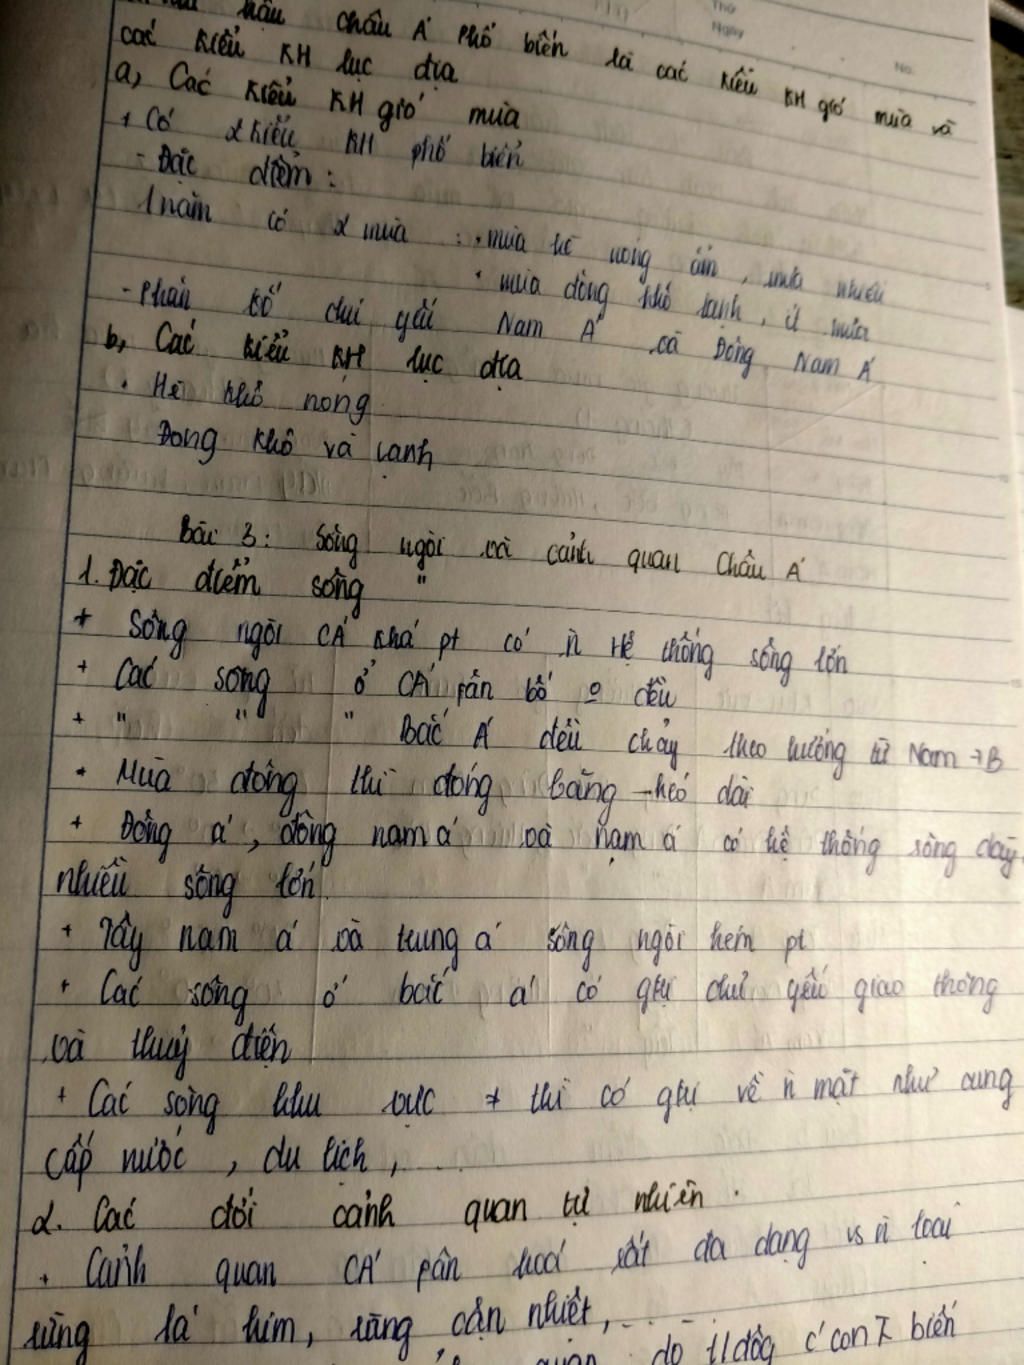 hậu châu Á phổ biến là các kiểu KH gió mùa và
các kiểu KH lục địa
a, Các kiểu KH gió mùa
+ Có 2 kiểu KH phổ biến
- Đặc điểm:
1 năm có 2 mùa : • mùa hè nóng ẩm, mưa nhiều
• mùa đông khô lạnh, ít mưa
- Phân bố chủ yếu Nam Á và Đông Nam Á
b, Các kiểu KH lục địa
• Hè khô nóng
Đong khô và lạnh
Bài 3: Sông ngòi và cảnh quan Châu Á
1. Đặc điểm sông "
+ Sông ngòi CÁ khá pt có ñ Hệ thống sông lớn
+ Các sông ở CÁ pân bố o đều
+ " " " Bắc Á đều chảy theo hướng từ Nam → B
+ Mùa đông thì đóng băng kéo dài
+ Đông á, đông nam á và nam á có hệ thống sông dày
nhiều sông lớn
+ Tây nam á và trung á sông ngòi kém pt
+ Các sông ở bắc á có gtrị chủ yếu giao thông
và thuỷ điện
+ Các sông khu vực ≠ thì có gtrị về ñ mặt như cung
cấp nước, du lịch, ...
2. Các đới cảnh quan tự nhiên.
+ Cảnh quan CÁ pân hoá rất đa dạng vs ñ loại
rừng lá kim, rừng cận nhiệt, ...
quan do
biến